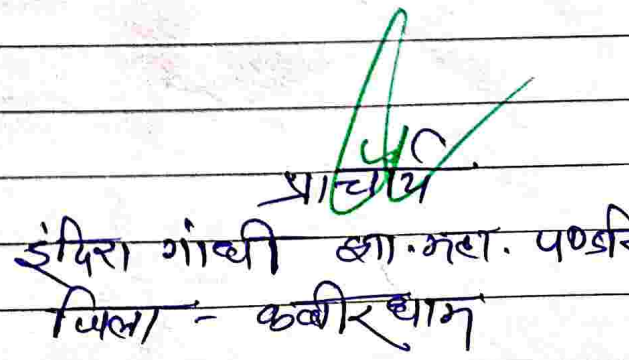 प्राचार्य
इंदिरा गांधी शा. महा. पण्डरि
जिला - कबीरधाम